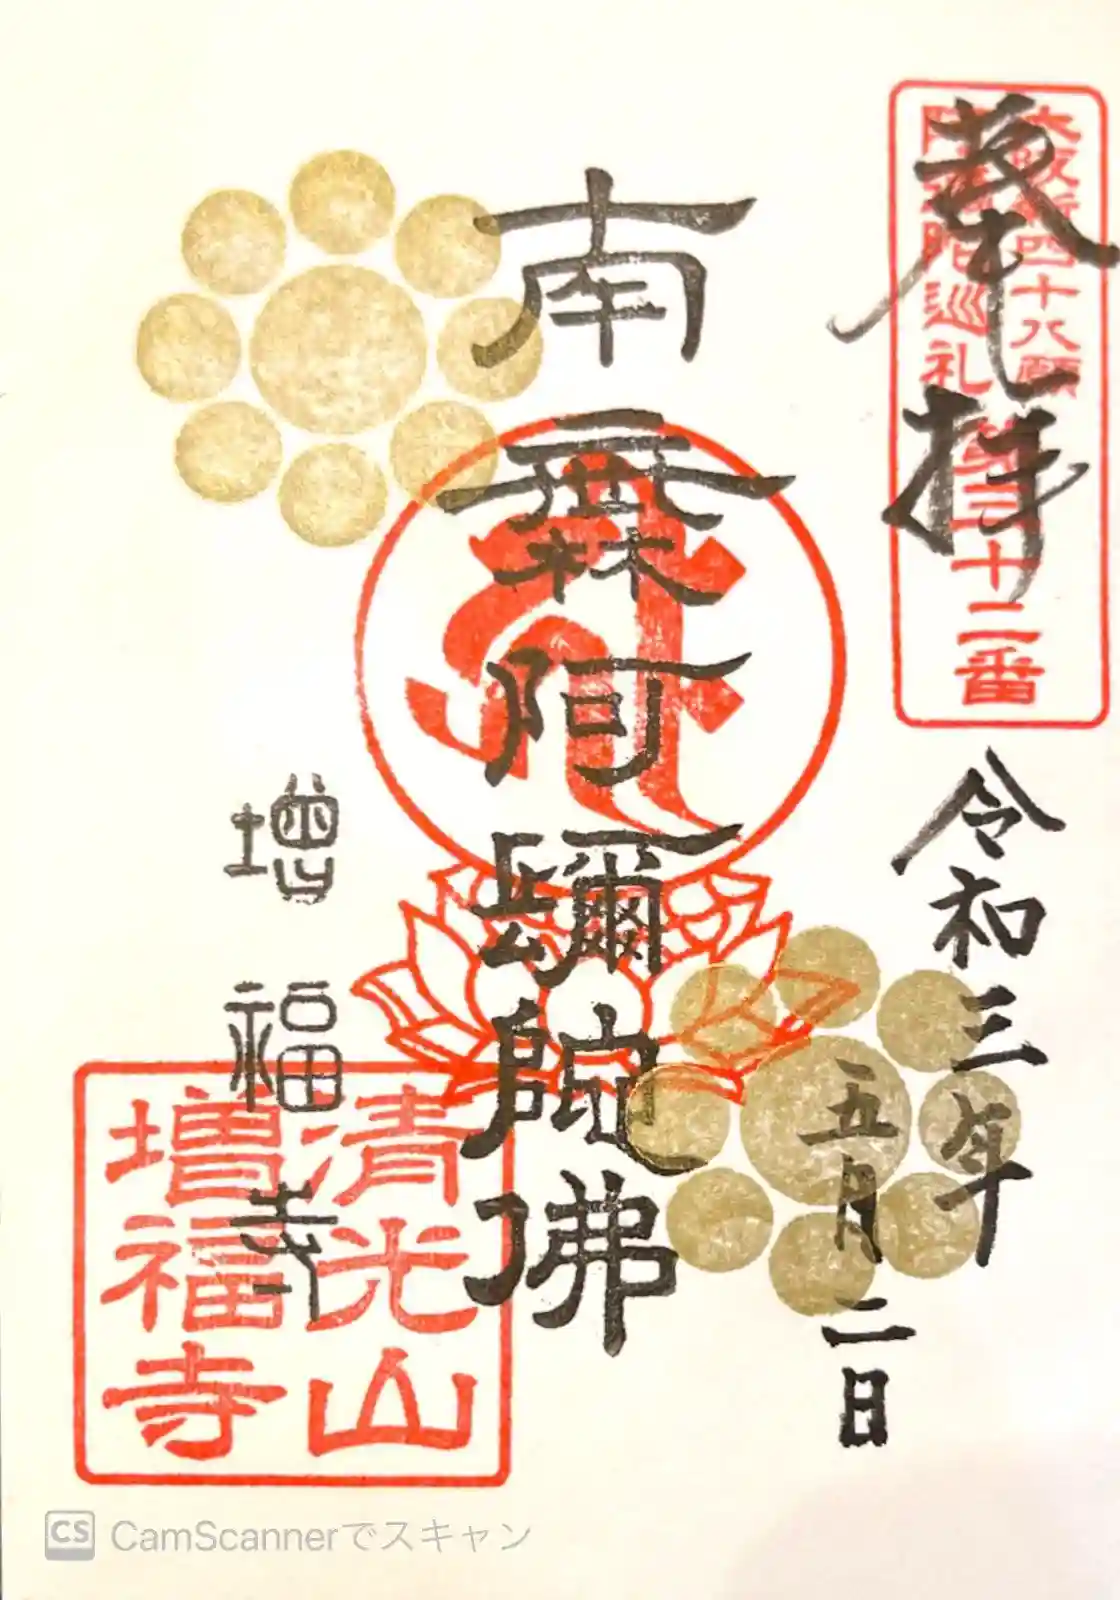 奉拝
大阪新四十八願
阿弥陀巡礼
第三十二番
令和三年
五月二日
南無阿彌陀佛
増福寺
清光山
増福寺
CS CamScannerでスキャン